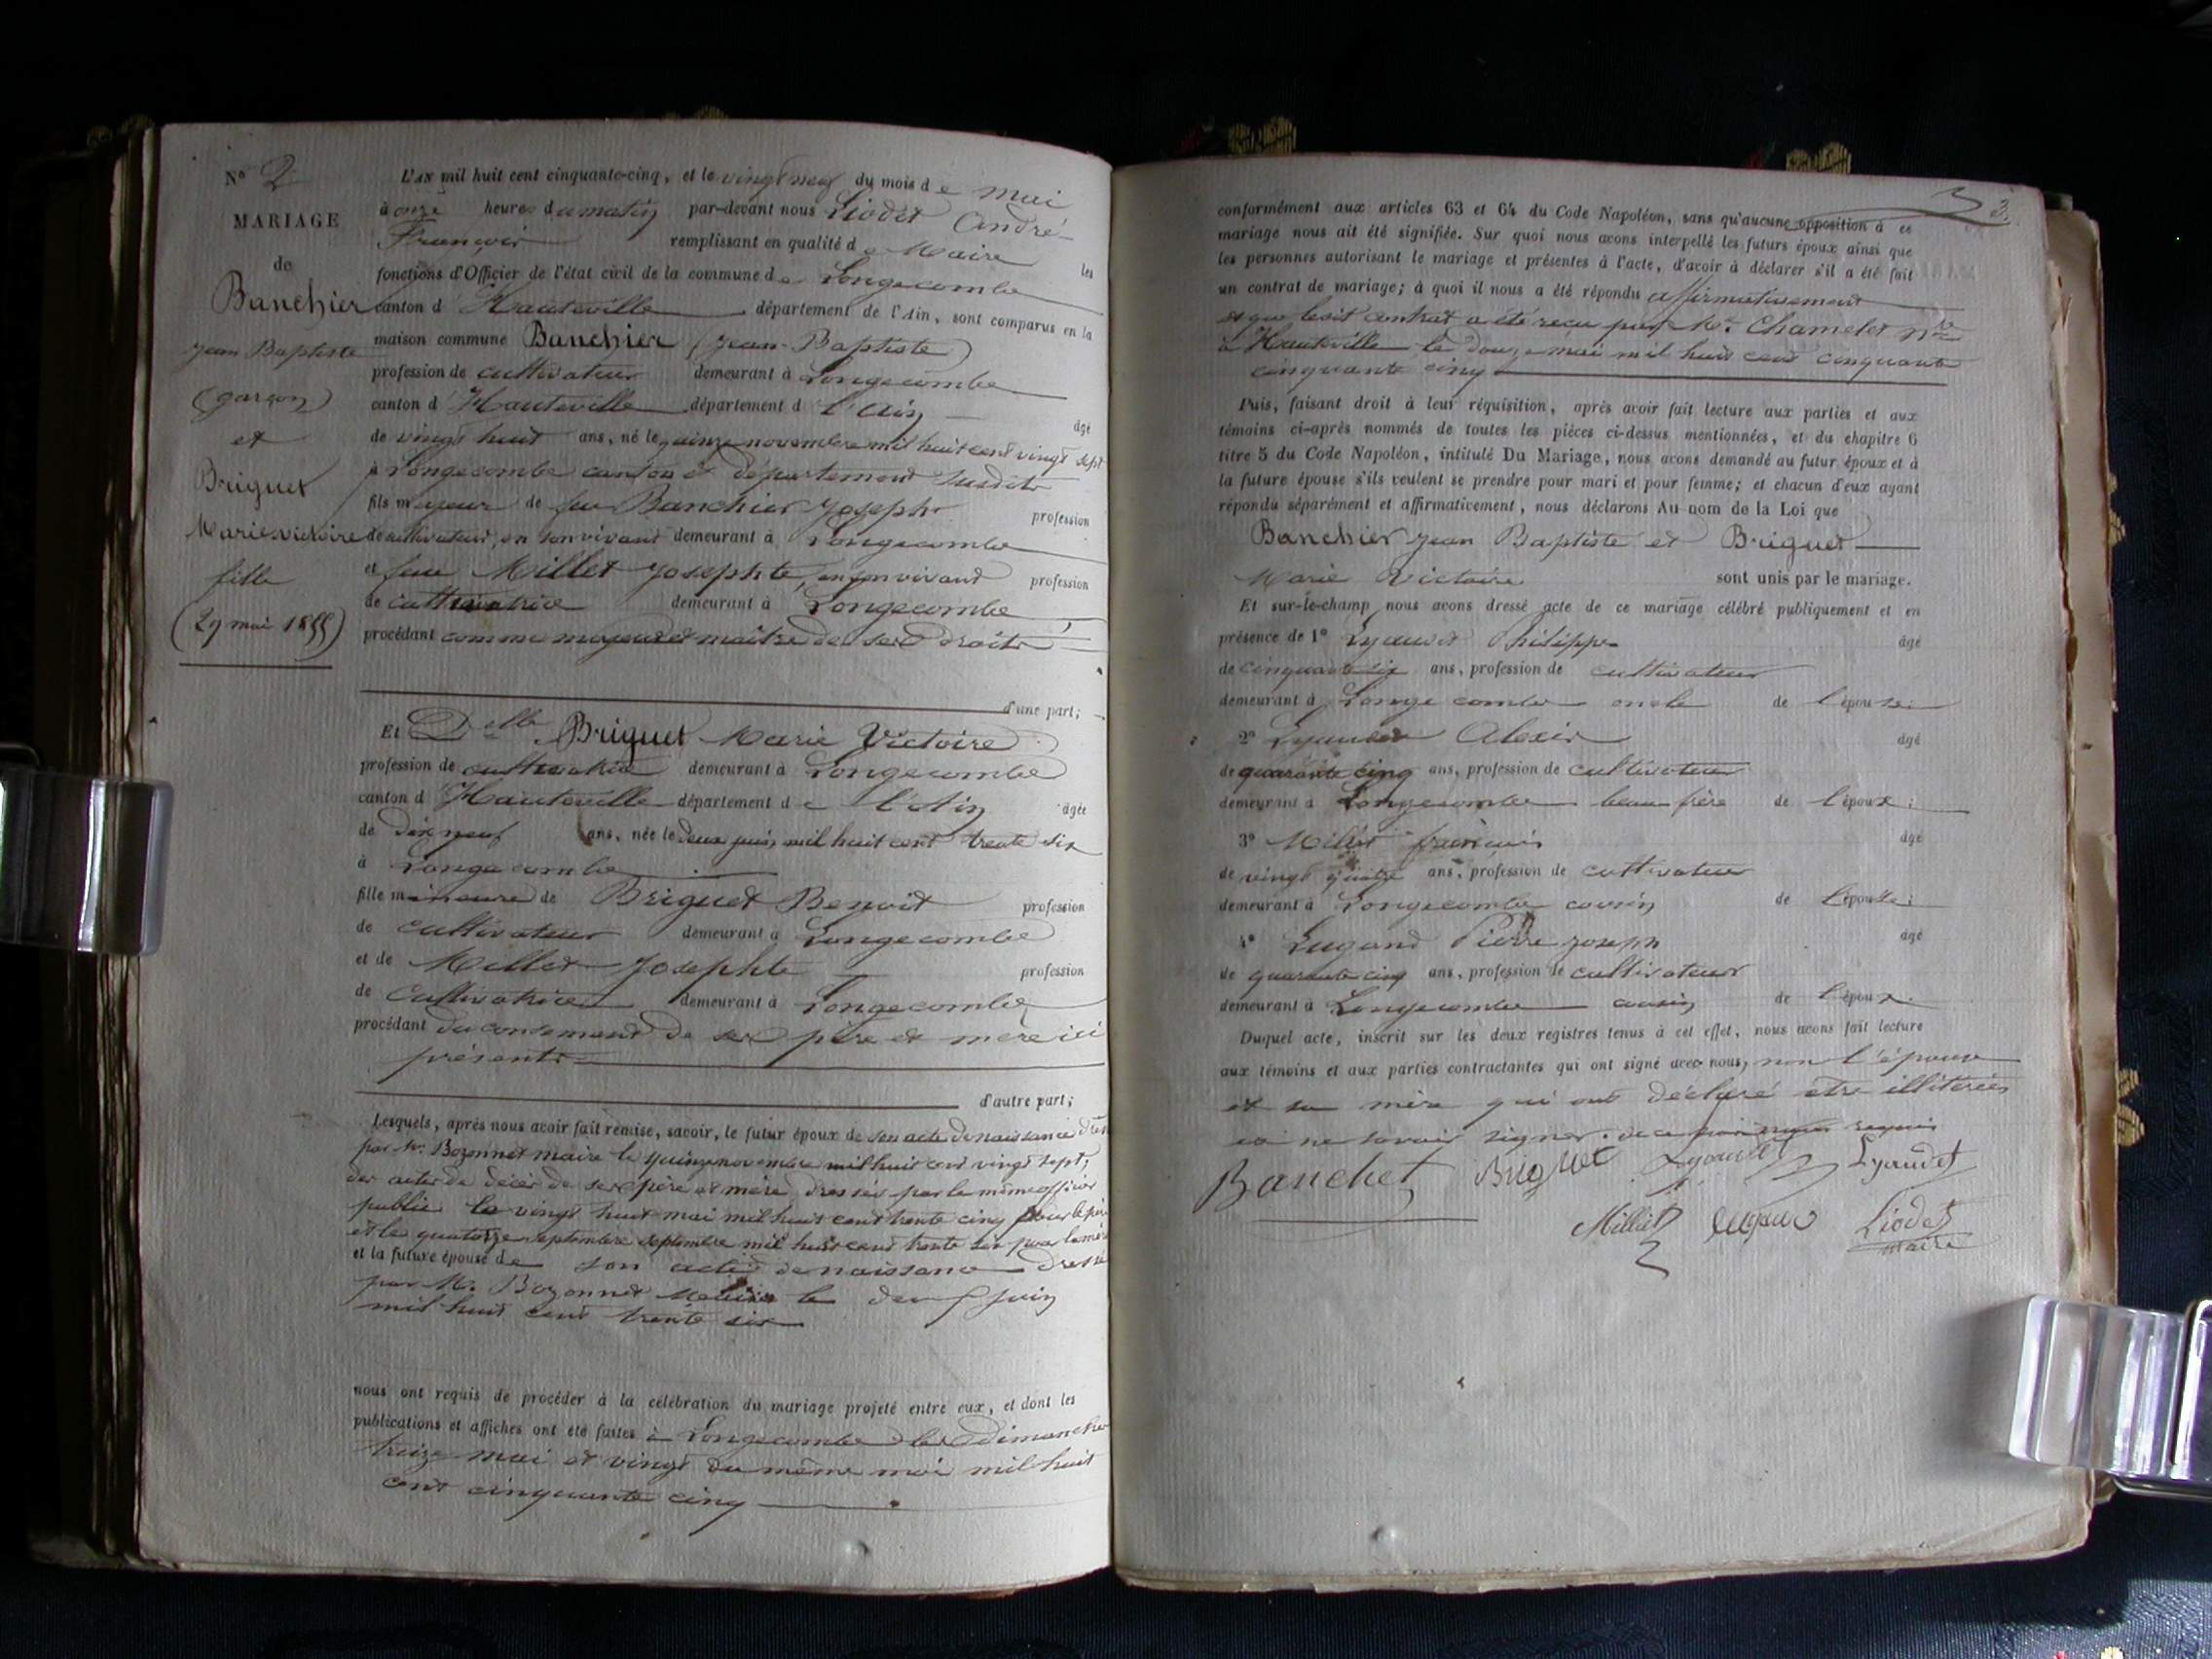 N° 2
MARIAGE
de
Banchier
Jean Baptiste
(garçon)
et
Briguet
Marie victoire
fille
(29 mai 1855)
L'AN mil huit cent cinquante-cinq, et le vingt neuf du mois de mai
à onze heures du matin par-devant nous Liodet André
François remplissant en qualité de Maire les
fonctions d'Officier de l'état civil de la commune de Longecombe
canton d'Hauteville département de l'Ain, sont comparus en la
maison commune Banchier (Jean-Baptiste)
profession de cultivateur demeurant à Longecombe
canton d'Hauteville département d l'Ain âgé
de vingt huit ans, né le quinze novembre mil huit cent vingt sept
à Longecombe canton et département susdits
fils majeur de feu Banchier Joseph profession
de cultivateur, en son vivant demeurant à Longecombe
et feue Millet Josephte, en son vivant profession
de cultivatrice demeurant à Longecombe
procédant comme majeur et maître de ses droits
d'une part;
Et Delle Briguet Marie Victoire
profession de cultivatrice demeurant à Longecombe
canton d'Hauteville département de l'Ain âgée
de dix neuf ans, née le deux juin mil huit cent trente six
à Longecombe
fille mineure de Briguet Benoit profession
de cultivateur demeurant à Longecombe
et de Millet Josephte profession
de cultivatrice demeurant à Longecombe
procédant du consement de ses père et mère ici
présents
d'autre part;
Lesquels, après nous avoir fait remise, savoir, le futur époux de son acte de naissance
par Mr. Bozonnet maire le quinze novembre mil huit cent vingt sept;
des actes de décès de ses père et mère dressés par le même officier
public le vingt huit mai mil huit cent trente cinq pour le père
et le quatorze septembre septembre mil huit cent trente six pour la mère
et la future épouse de son acte de naissance dressé
par M. Bozonnet Maire le deux juin
mil huit cent trente six
nous ont requis de procéder à la célébration du mariage projeté entre eux, et dont les
publications et affiches ont été faites à Longecombe les dimanches
treize mai et vingt du même moi mil huit
cent cinquante cinq
3
conformément aux articles 63 et 64 du Code Napoléon, sans qu'aucune opposition à ce
mariage nous ait été signifiée. Sur quoi nous avons interpellé les futurs époux ainsi que
les personnes autorisant le mariage et présentes à l'acte, d'avoir à déclarer s'il a été fait
un contrat de mariage; à quoi il nous a été répondu affirmativement
et que ledit contrat a été reçu par Me. Chamelet nre
à Hauteville le douze mai mil huit cent cinquante
cinquante cinq
Puis, faisant droit à leur réquisition, après avoir fait lecture aux parties et aux
témoins ci-après nommés de toutes les pièces ci-dessus mentionnées, et du chapitre 6
titre 5 du Code Napoléon, intitulé Du Mariage, nous avons demandé au futur époux et à
la future épouse s'ils veulent se prendre pour mari et pour femme; et chacun d'eux ayant
répondu séparément et affirmativement, nous déclarons Au nom de la Loi que
Banchier Jean Baptiste et Briguet
Marie Victoire sont unis par le mariage.
Et sur-le-champ nous avons dressé acte de ce mariage célébré publiquement et en
présence de 1° Lyaudet Philippe âgé
de cinquante six ans, profession de cultivateur
demeurant à Longecombe oncle de l'épouse;
2° Lyaudet Alexis âgé
de quarante cinq ans, profession de cultivateur
demeurant à Longecombe beau frère de l'époux;
3° Millet françois âgé
de vingt quatre ans, profession de cultivateur
demeurant à Longecombe cousin de l'épouse;
4° Lugand Pierre Joseph âgé
de quarante cinq ans, profession de cultivateur
demeurant à Longecombe cousin de l'époux.
Duquel acte, inscrit sur les deux registres tenus à cet effet, nous avons fait lecture
aux témoins et aux parties contractantes qui ont signé avec nous, non l'épouse
et sa mère qui ont déclaré être illiterées
et ne savoir signer. de ce requis
Banchet Briguet Lyaudet Lyaudet
Milliet Lugand Liodet
maire